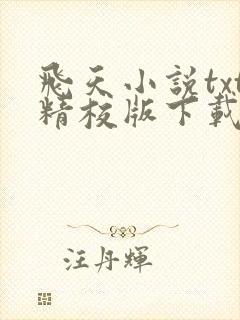 飛天小説txt
精校版下載
汪丹輝